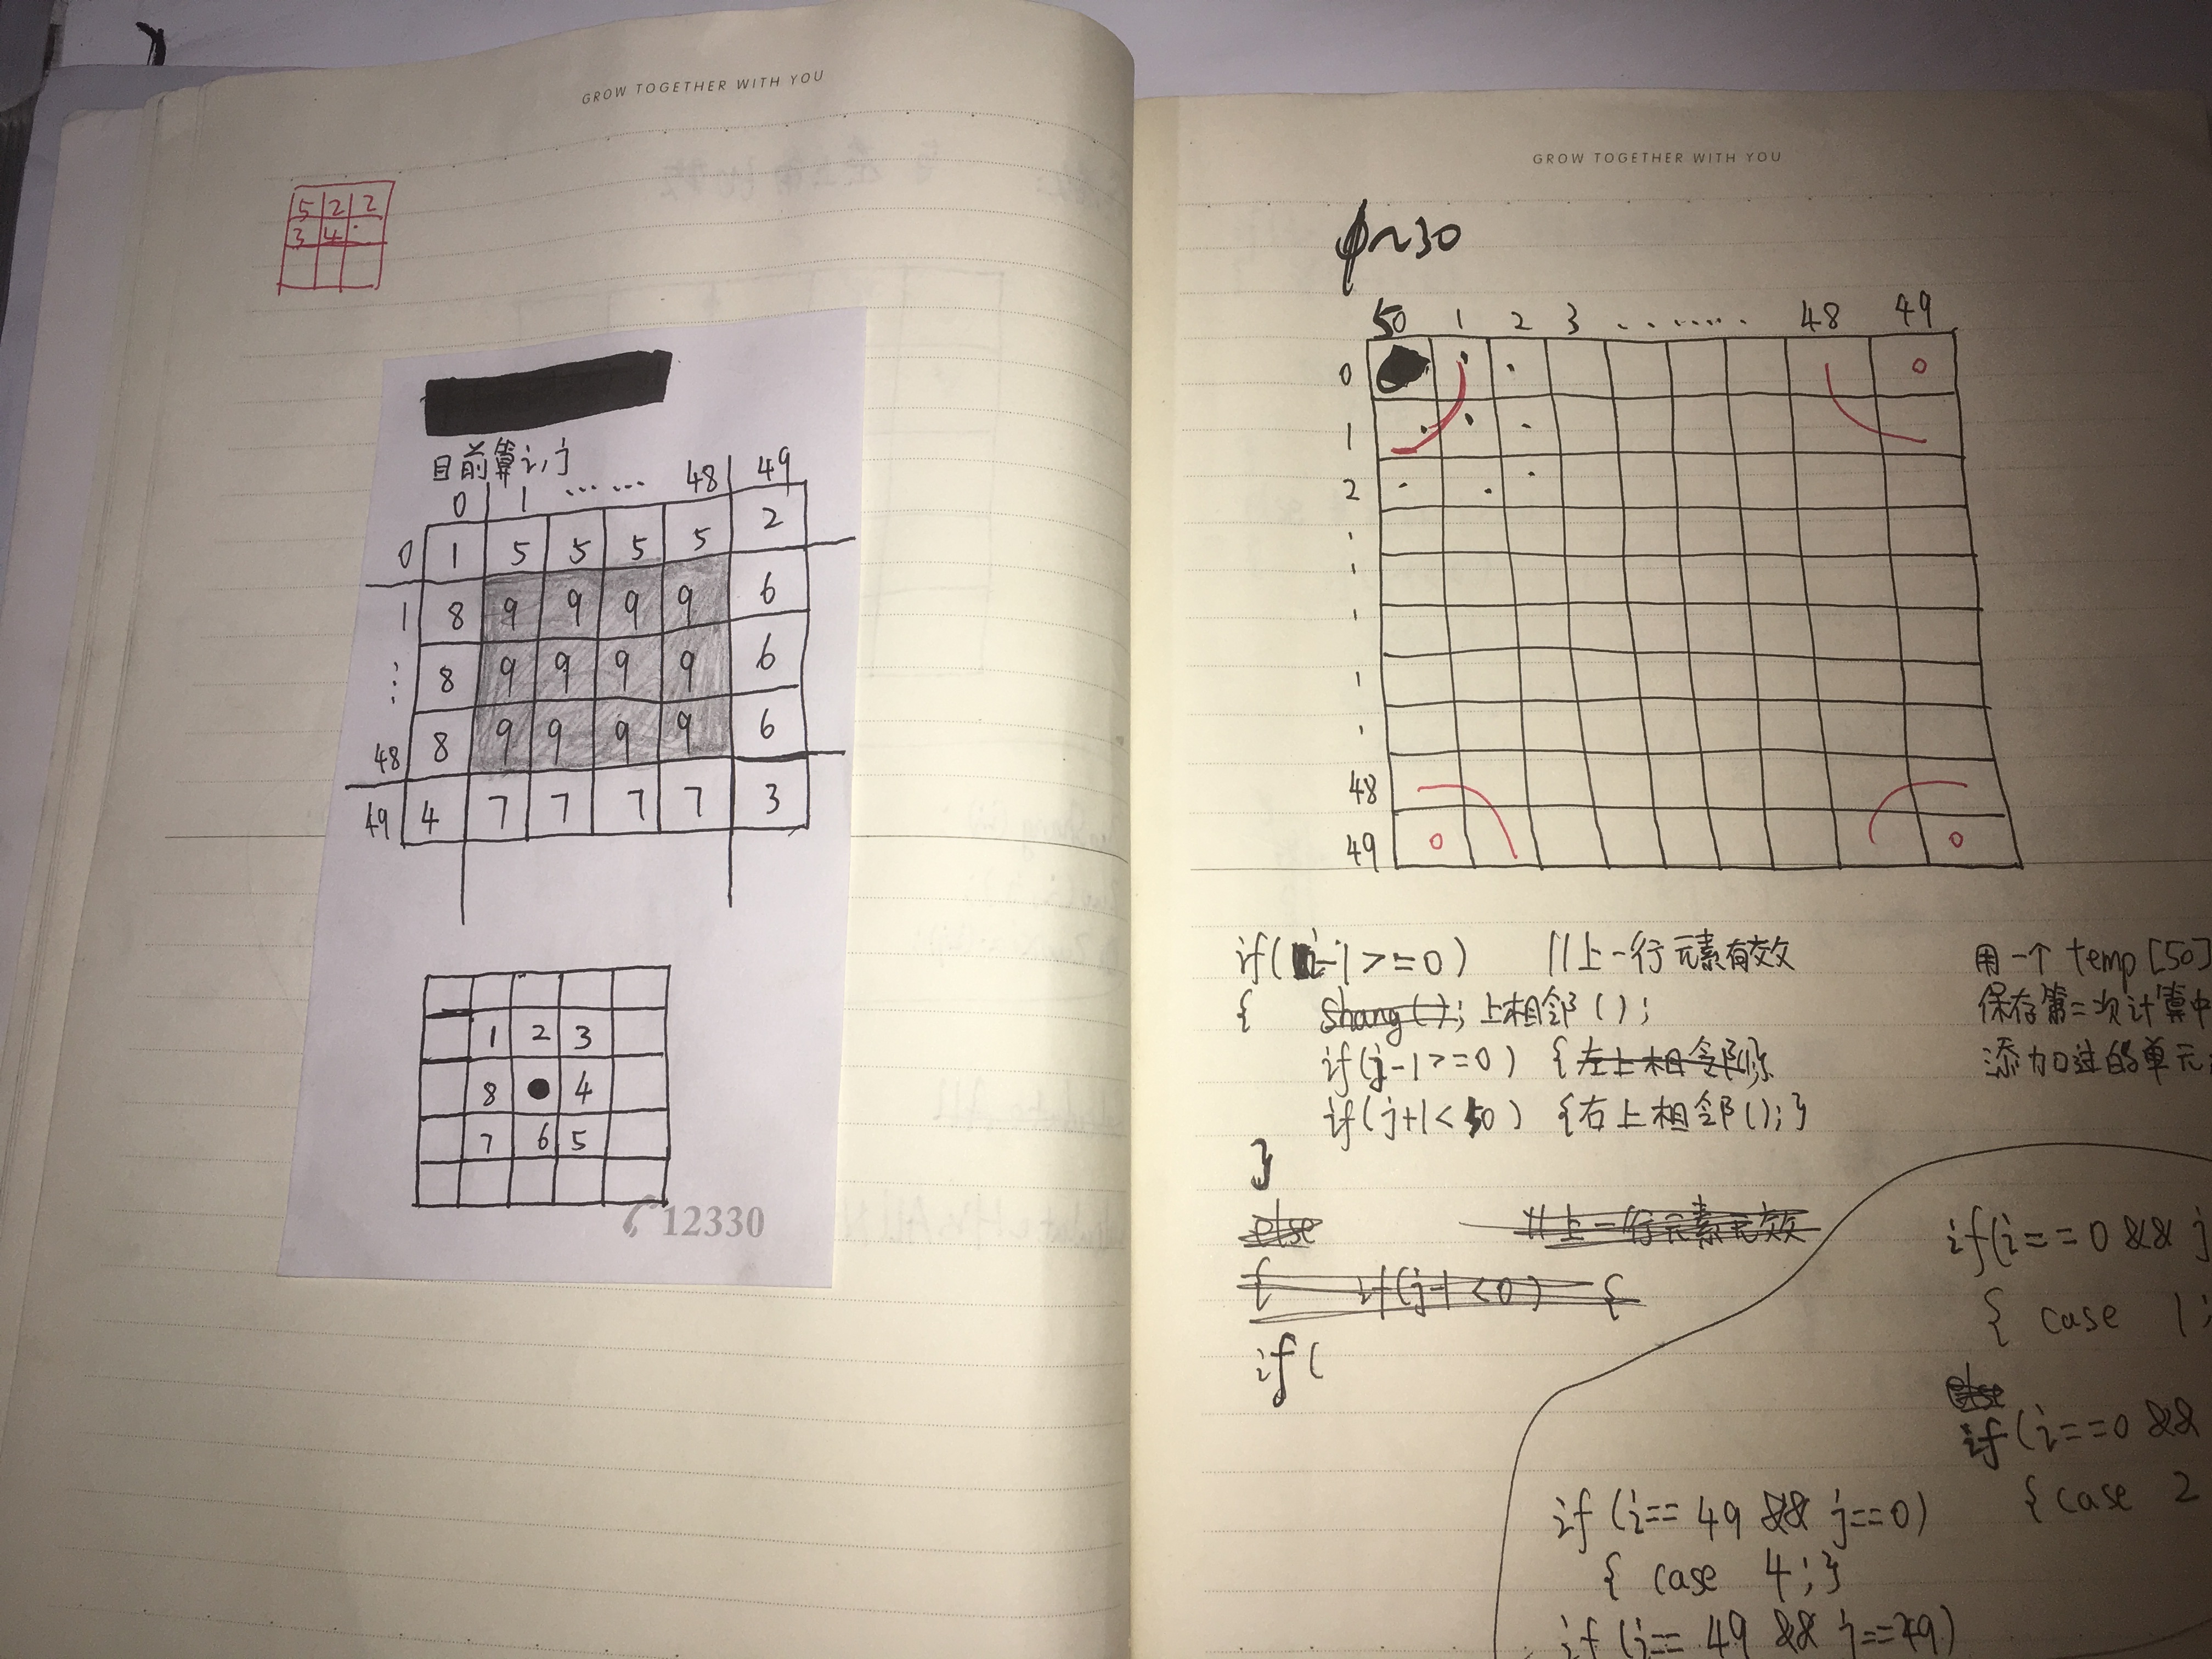 GROW TOGETHER WITH YOU
5 2 2
3 4
目前算i,j
0 1 ...... 48 49
0 1 5 5 5 5 2
1 8 9 9 9 9 6
⋮ 8 9 9 9 9 6
48 8 9 9 9 9 6
49 4 7 7 7 7 3
1 2 3
8 4
7 6 5
12330
GROW TOGETHER WITH YOU
~30
50 1 2 3 ....... 48 49
0 0
1
2
48
49 0 0
if(i-1>=0) //上一行元素有效
{ shang(); 上相邻();
if(j-1>=0) {左上相邻();
if(j+1<50) {右上相邻();}
}
else //上一行元素无效
{ if(j-1<0) {
if(
用一个temp[50]
保存第二次计算中
添加过的单元
if(i==0 && j
{ case 1;
else
if(i==0 &&
{case 2
if(i==49 && j==0)
{ case 4;}
if(i==49 && j==49)